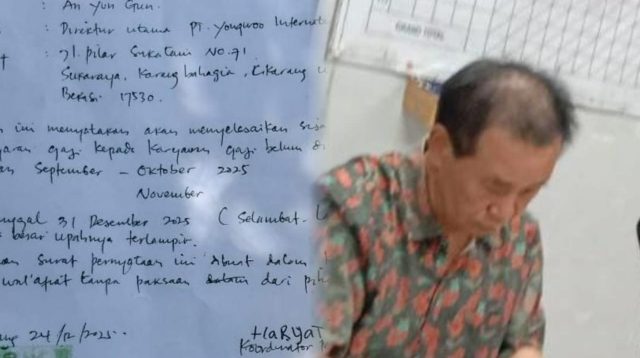 : An Yun Gun.
: Direktur utama PT. Yongwoo Internat
: Jl. Pilar Sukatani No. 71
Sukaraya, Karang bahagia, Cikarang
Bekasi 17530.
ini menyatakan akan menyelesaikan
gaji kepada Karyawan gaji belum
September - Oktober 2025
November
31 Desember 2025 ( Selambat -
besar upahnya terlampir.
surat pernyataan ini dibuat dalam
tanpa paksaan dalam dari
24/12/2025.
HARYAT
Koordinator
GRAND TOTAL